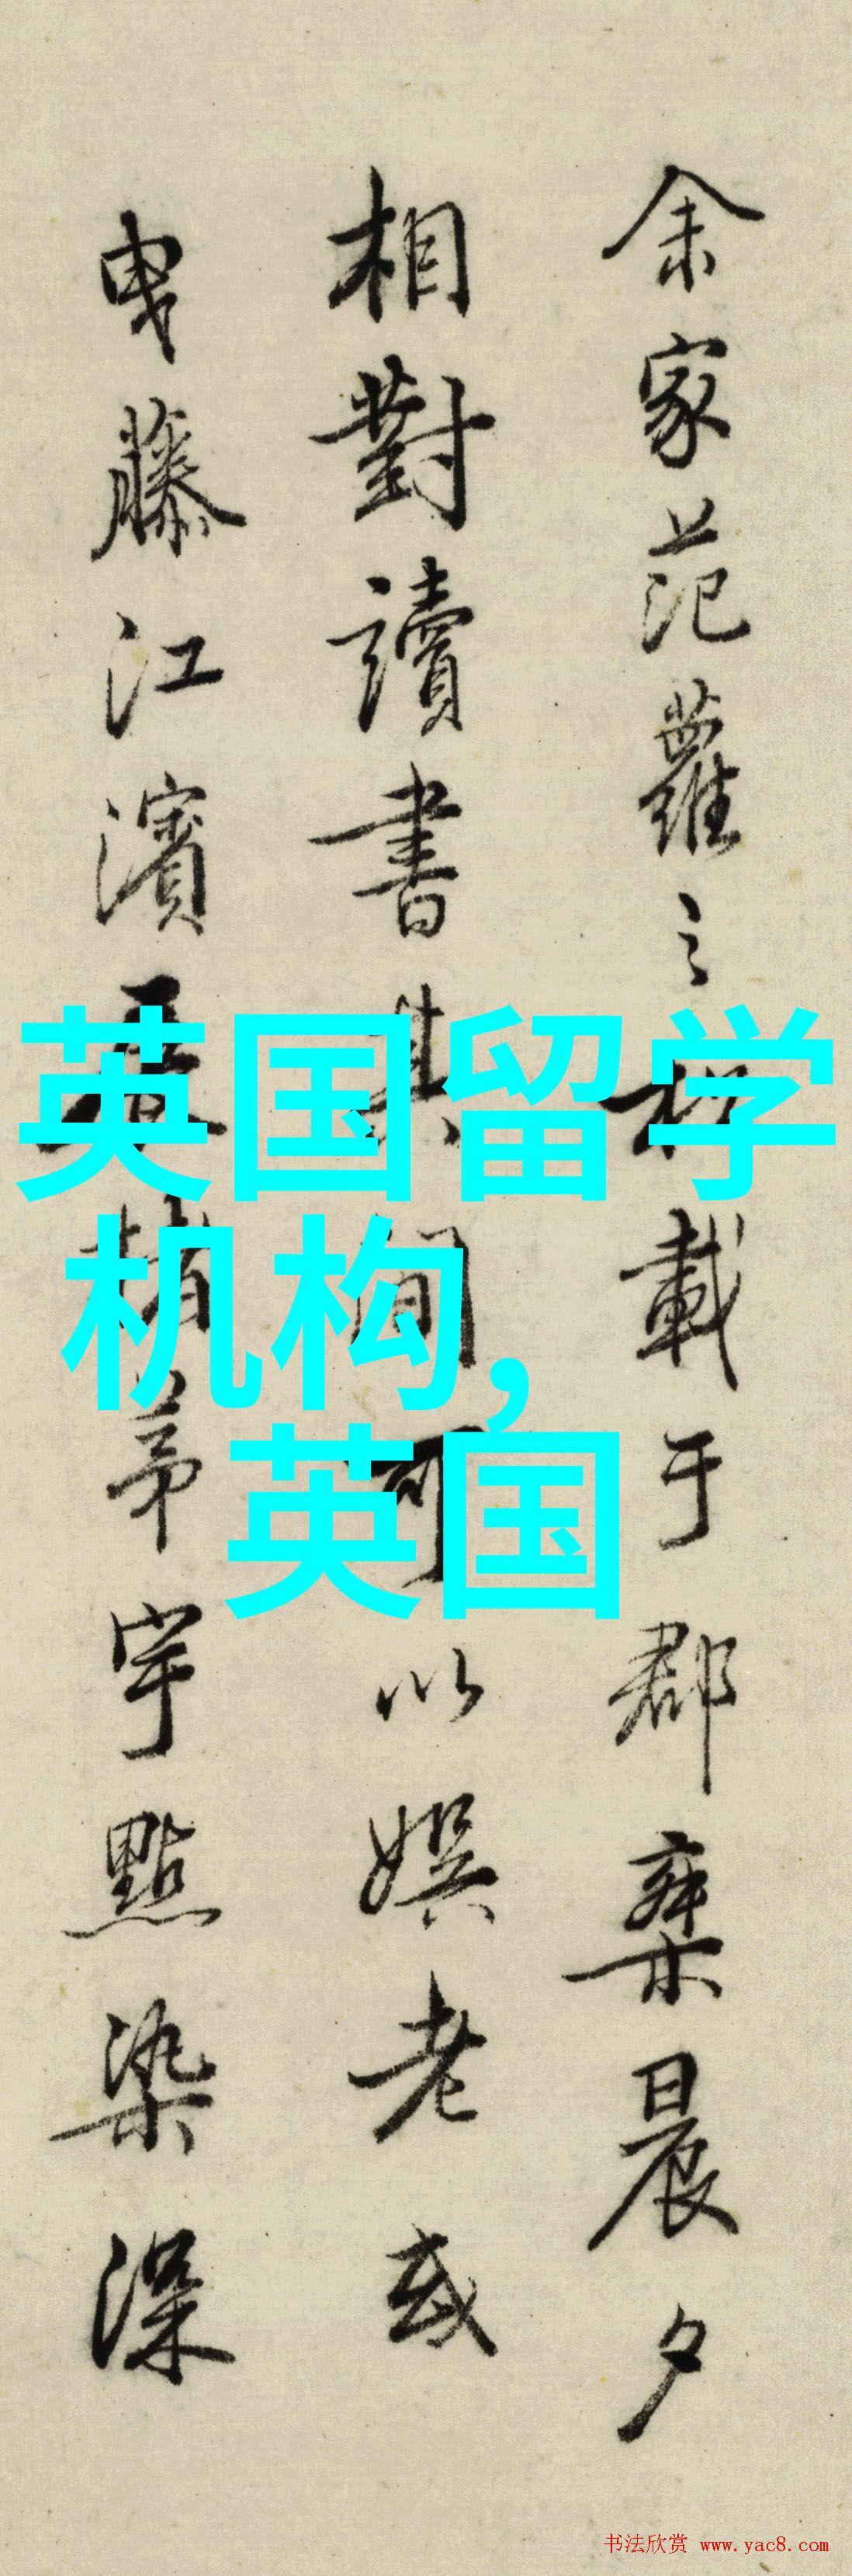 余家范蘿之秘載于郡齋晨夕
相對讀書其間可以娛老或
曳藤江濱屐猎茅宇點染深
英国留学
机构,
英国
书法欣赏 www.yac8.com